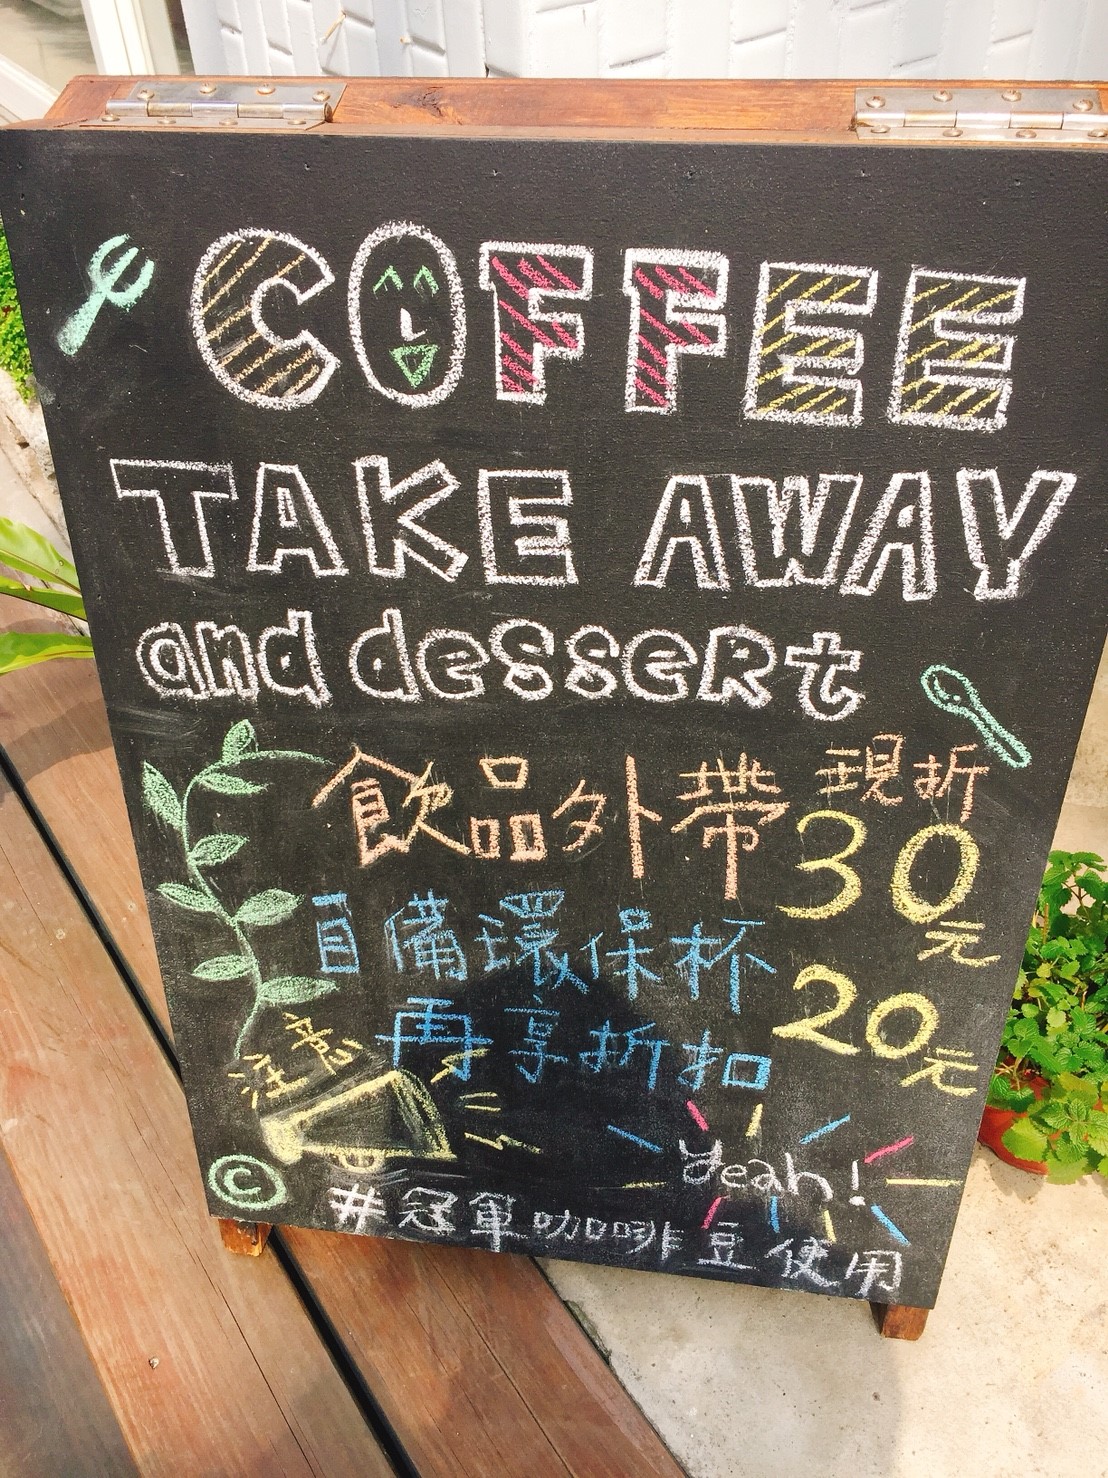 COFFEE
TAKE AWAY
and dessert
飲品外帶 現折
30元
自備環保杯
再享折扣 20元
注意
yeah!
©
#冠軍咖啡豆使用